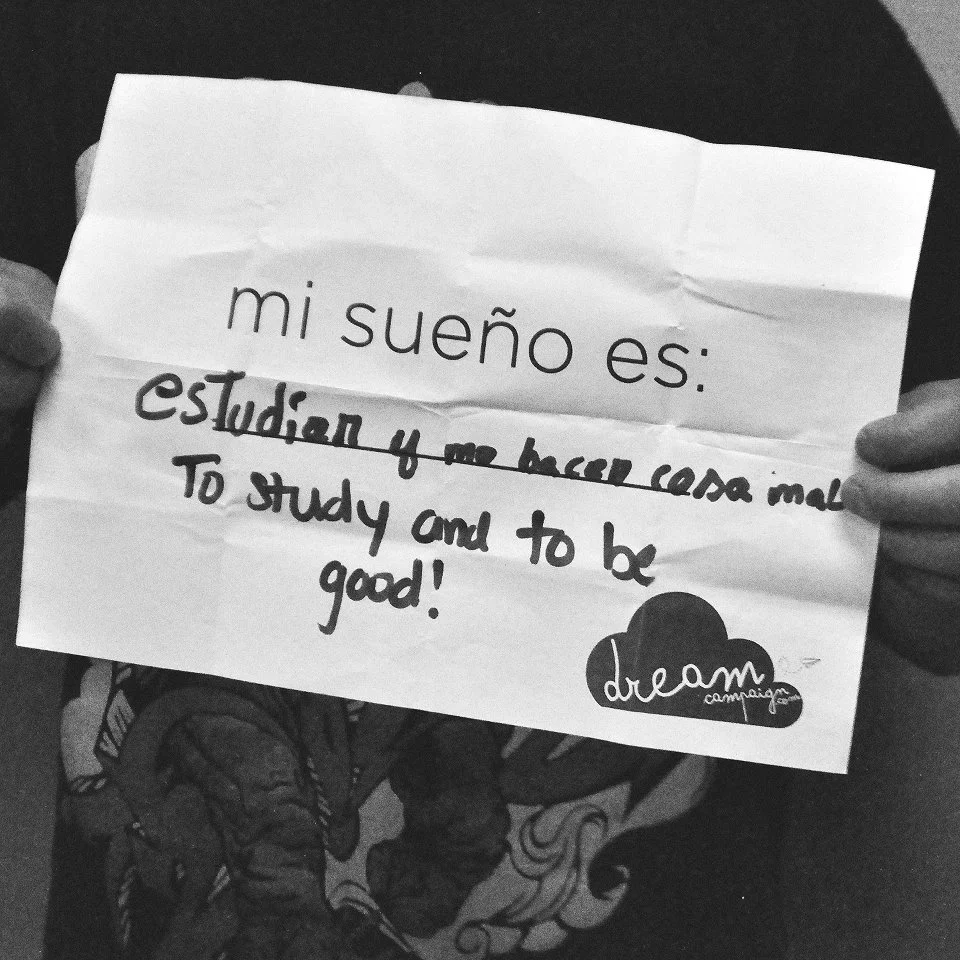 mi sueño es:
estudiar y no hacer cosa mal
To study and to be
good!
dream
campaign.com